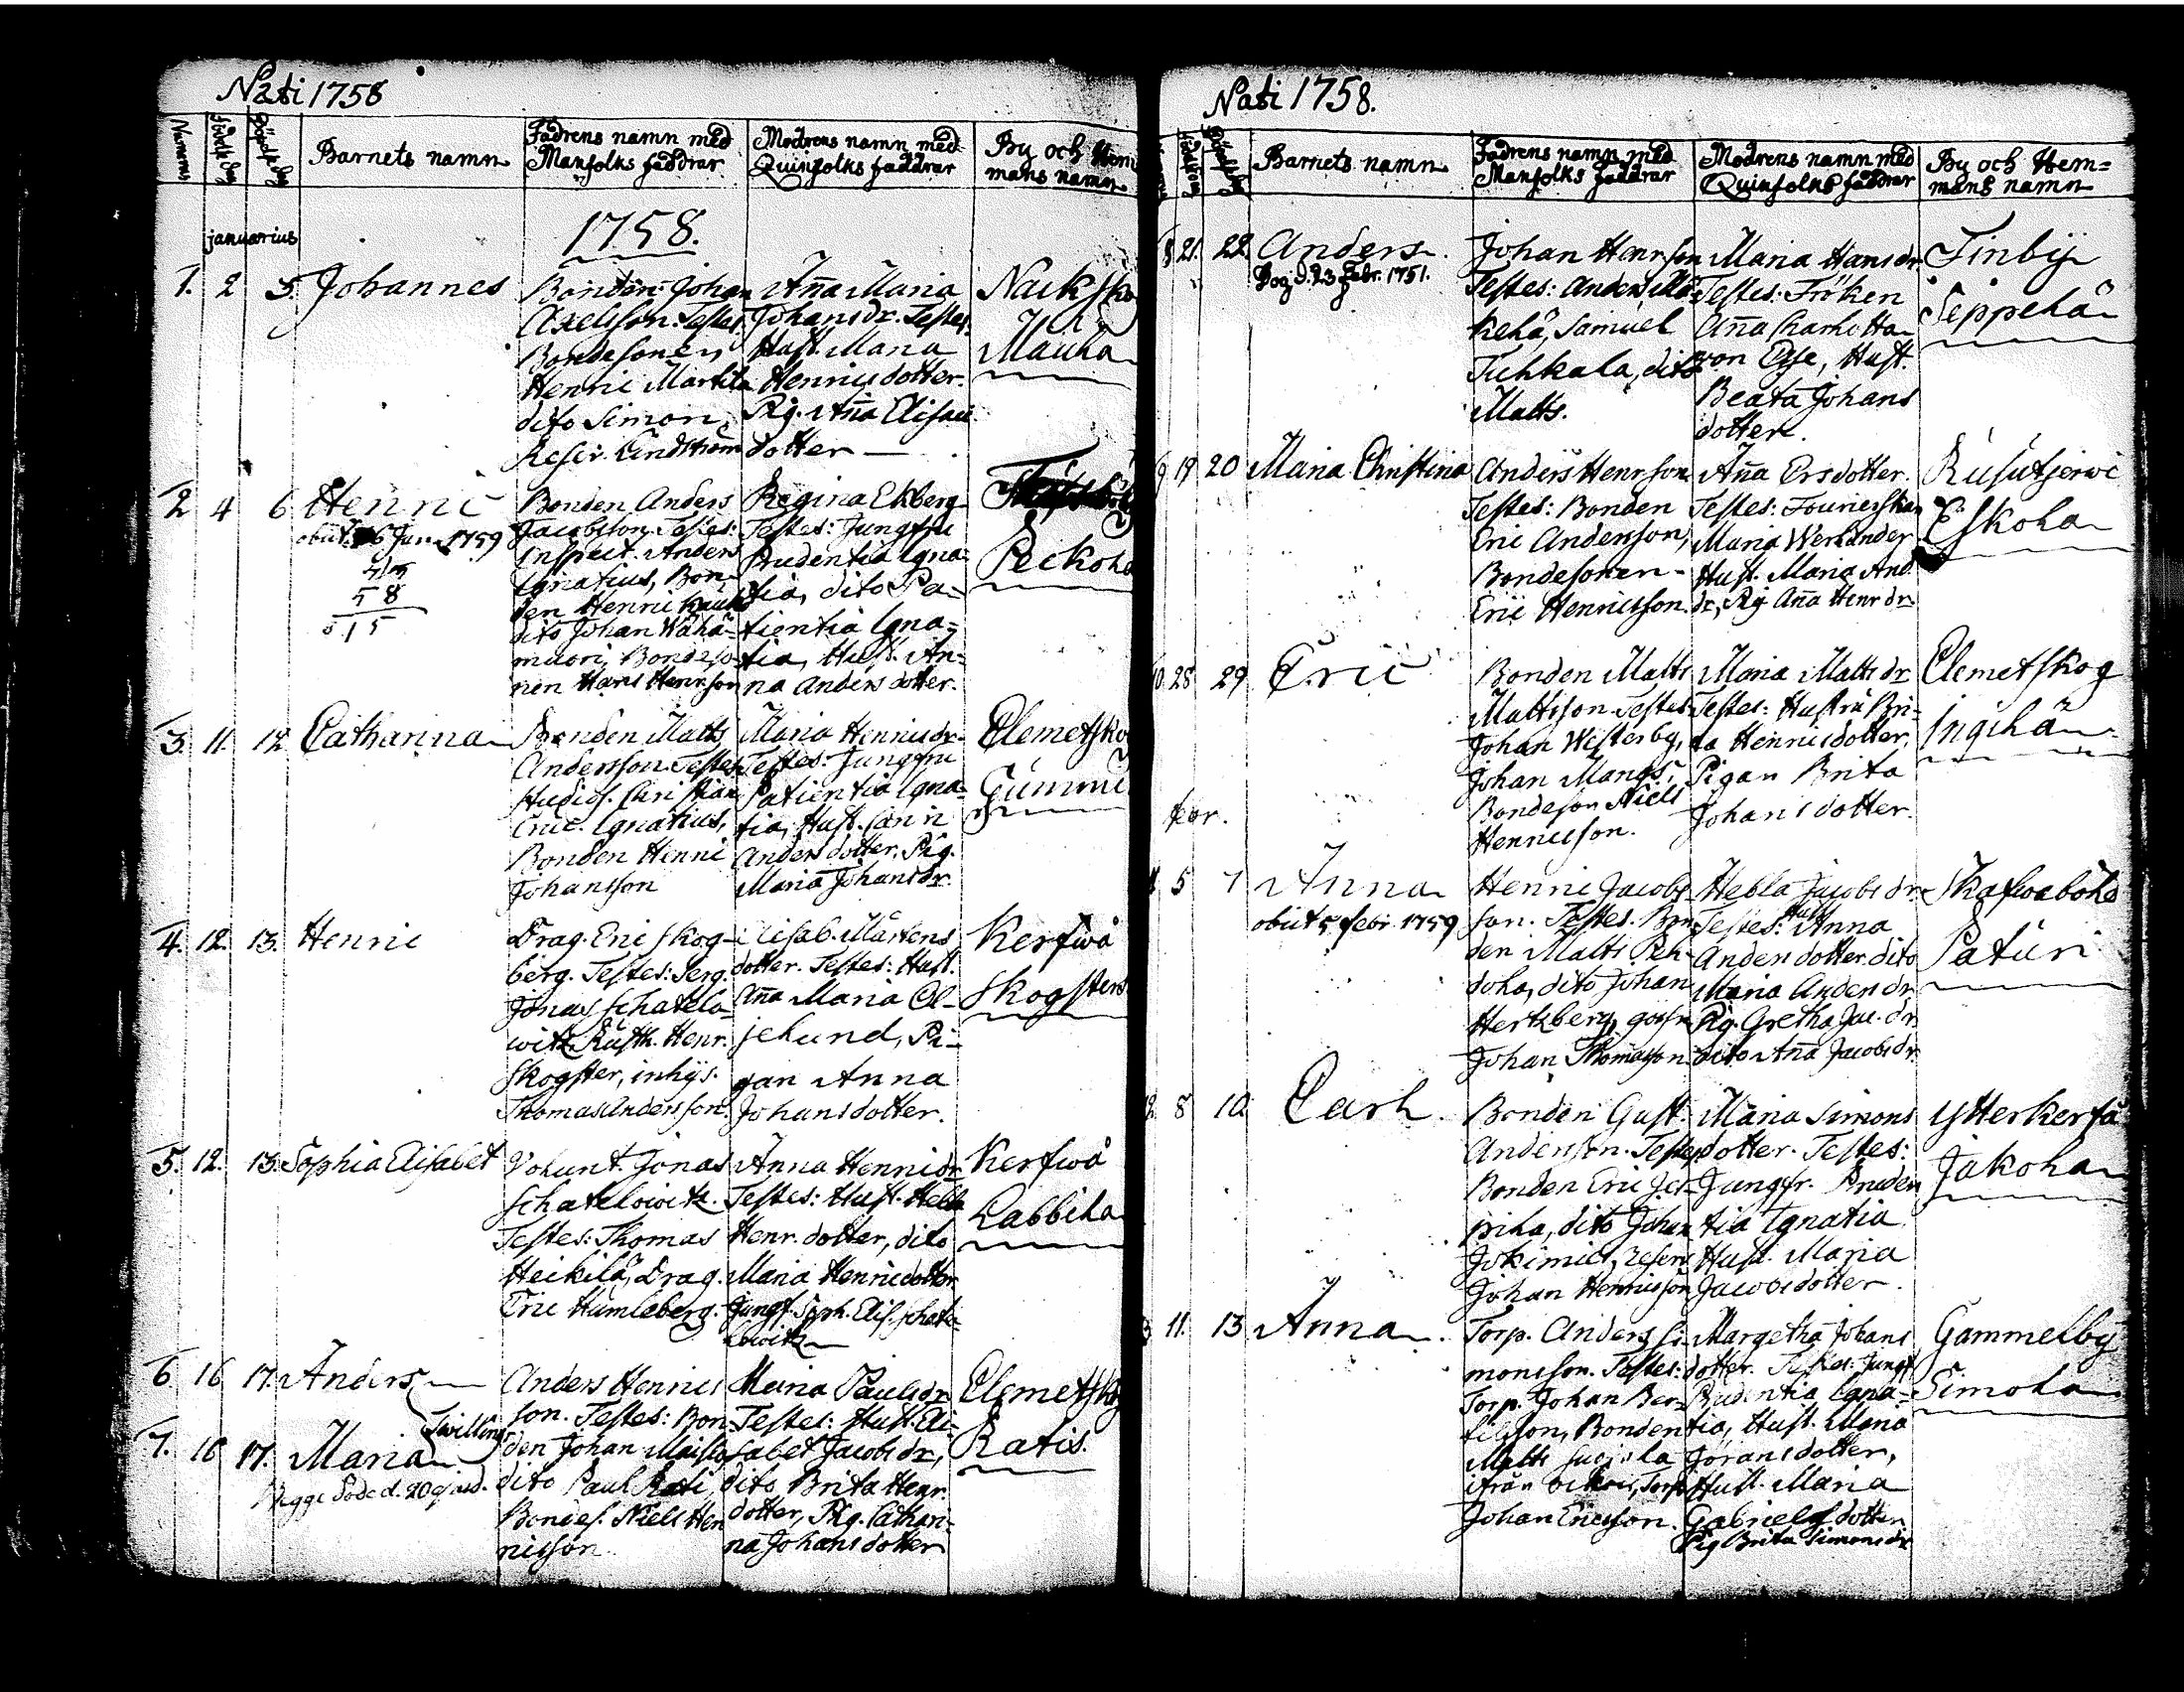 Nati 1758
Numerus
Födelse dag
Döpelse dag
Barnets namn
Fadrens namn med
Manfolks faddrar
Modrens namn med
Quinfolks faddrar
By och Hem
mans namn
januarius
1758.
1. 2 5. Johannes
Bonden Johan
Axelsson. Testes.
Bondesonen
Henric Martila
dito Simon,
Reserv. Lindström
Aña Maria
Johansdr. Testes.
Hust. Maria
Henricsdotter.
Pig. Aña Elisaei
dotter
Nacksko
Maula
2 4 6 Henric
obiit 6 Jun. 1759
58
Bonden Anders
Jacobsson. Testes:
Inspect. Anders
Ignatius, Bon-
den Henric
dito Johan Wähä-
maori, Bondeso-
nen Hans Henrson
Regina Ekberg
Testes: Jungfru
Prudentia Igna-
tia, dito Pa-
tientia Igna-
tia, Hust. An-
na Andersdotter.
Peckola
3. 11. 12. Catharina
Bonden Matts
Andersson. Testes
Studios. Christian
Eric. Ignatius,
Bonden Henric
Johansson
Maria Henricsdr.
Testes: Jungfru
Patientia Igna-
tia, Hust. Carin
Andersdotter. Pig.
Maria Johansdr.
Clemetsko
Gummi
4. 12. 13. Henric
Drag. Eric Skog-
berg. Testes: Serg.
Jonas Schatelo-
witz, Rusth. Henr.
Skogster, inhys.
Thomas Andersson.
Elisab. Mårtens
dotter. Testes: Hust.
Aña Maria Ol-
jelund, Pi-
gan Anna
Johansdotter.
Kerfwå
Skogsters
5. 12. 13. Sophia Elisabet
Volunt. Jonas
Schatelowitz.
Testes: Thomas
Heikilä, Drag.
Eric Humleberg.
Anna Henricsdr
Testes: Hust. Hebla
Henr. dotter, dito
Maria Henricsdotter
Jungf. Soph. Elis. Schate-
lowitz
Kerfwå
Labbila
6. 16 17. Anders
Twillingr
7. 16 17. Maria
Begge döde d. 20 ejusd.
Anders Henrics
son. Testes: Bon-
den Johan
dito Paul Rati
Bondes. Niels Hen
ricsson
Maria Paulsdr
Testes: Hust. Eli-
sabet Jacobsdr,
dito Brita Henr.
dotter, Pig. Cathari-
na Johansdotter
Clemetskog
Ratis.
Nati 1758.
Barnets namn
Fadrens namn med
Manfolks faddrar
Modrens namn med
Quinfolks faddrar
By och Hem=
mans namn
8 21. 22. Anders.
Dog d. 23 Febr. 1751.
Johan Henrson
Testes: Anders Mä-
kelä, Samuel
Tuhkala, dito
Matts.
Maria Hansdr
Testes: Fröken
Aña Charlotta
von Esse, Hust.
Beata Johans
dotter.
Tinby
Seppelä
9 19 20 Maria Christina
Anders Henrson
Testes: Bonden
Eric Andersson,
Bondesonen
Eric Henricsson.
Aña Ersdotter.
Testes: Fourierskan
Maria Werlander
Hust. Maria And.
dr, Pig Aña Henrdr
Rusutjerwi
Eskola
10. 28 29 Eric
Bonden Matts
Mattsson. Testes
Johan Westerby,
Johan Mangs,
Bondeson Niels
Henricsson.
Maria Mattsdr
Testes: Hustru Bri-
ta Henricsdotter,
Pigan Brita
Johansdotter.
Clemetskog
Ingelä
febr.
5 7 Anna
obiit 5 febr. 1759
Henric Jacobs
son. Testes. Bon
den Matts Peh-
dola, dito Johan
Hertzberg, goss
Johan Thomasson
Hebla Jacobsdr
Testes: Hust Anna
Andersdotter dito
Maria Andersdr
Pig. Gretha Jac. dr
dito Aña Jacobsdr
Skafwaböhle
Paturi
12. 8 10. Carl.
Bonden Gust.
Andersson. Testes
Bonden Eric Jer-
pila, dito Johan
Jokimies, reserv
Johan Henricsson
Maria Simons
dotter. Testes:
Jungfr. Pruden
tia Ignatia
Hust. Maria
Jacobsdotter.
Ytterkerfå
Jakola
11. 13 Anna.
Torp. Anders Si-
monsson. Testes:
Torp. Johan Ber-
tilsson, Bonden
Matts
ifrån Torp
Johan Ericsson.
Margetha Johans
dotter. Testes: Jungf
Prudentia Igna-
tia, Hust. Maria
Jöransdotter,
Hust. Maria
Gabrielsdotter
Pig Brita Simonsdr
Gammelby
Simola